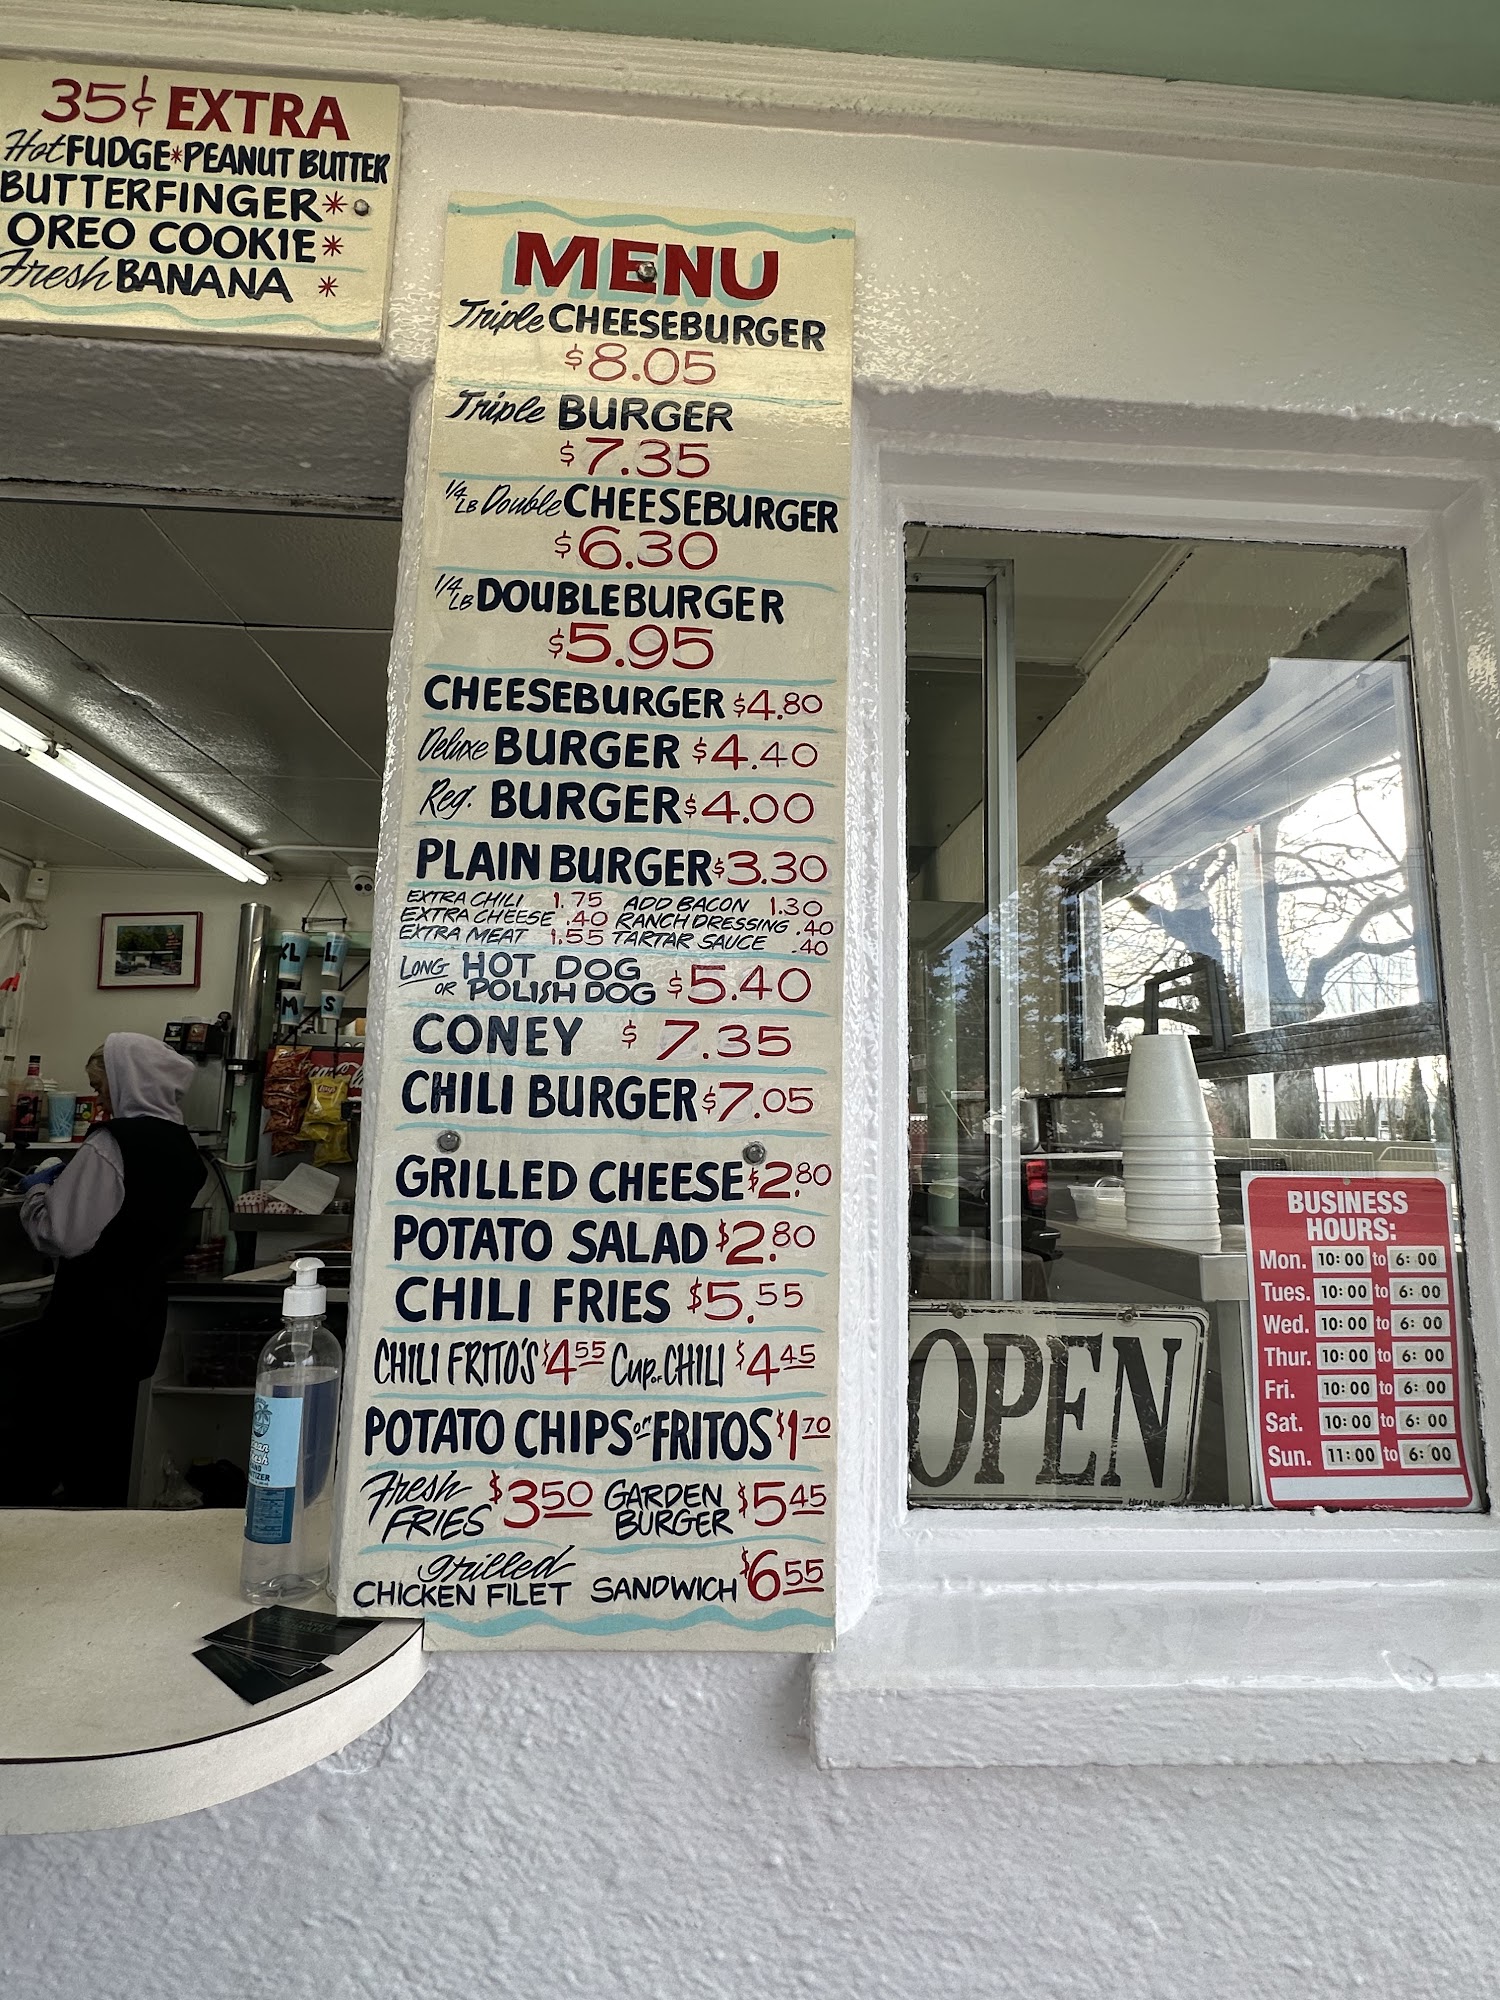 35¢ EXTRA
Hot FUDGE * PEANUT BUTTER
BUTTERFINGER *
OREO COOKIE *
Fresh BANANA *
MENU
Triple CHEESEBURGER
$8.05
Triple BURGER
$7.35
1/4 LB Double CHEESEBURGER
$6.30
1/4 LB DOUBLEBURGER
$5.95
CHEESEBURGER $4.80
Deluxe BURGER $4.40
Reg. BURGER $4.00
PLAIN BURGER $3.30
EXTRA CHILI 1.75 ADD BACON 1.30
EXTRA CHEESE .40 RANCH DRESSING .40
EXTRA MEAT 1.55 TARTAR SAUCE .40
LONG HOT DOG
OR POLISH DOG $5.40
CONEY $7.35
CHILI BURGER $7.05
GRILLED CHEESE $2.80
POTATO SALAD $2.80
CHILI FRIES $5.55
CHILI FRITO'S $4.55 CUP OF CHILI $4.45
POTATO CHIPS or FRITOS $1.70
Fresh FRIES $3.50 GARDEN BURGER $5.45
Grilled
CHICKEN FILET SANDWICH $6.55
XL L
M S
Lay's
OPEN
BUSINESS
HOURS:
Mon. 10:00 to 6:00
Tues. 10:00 to 6:00
Wed. 10:00 to 6:00
Thur. 10:00 to 6:00
Fri. 10:00 to 6:00
Sat. 10:00 to 6:00
Sun. 11:00 to 6:00